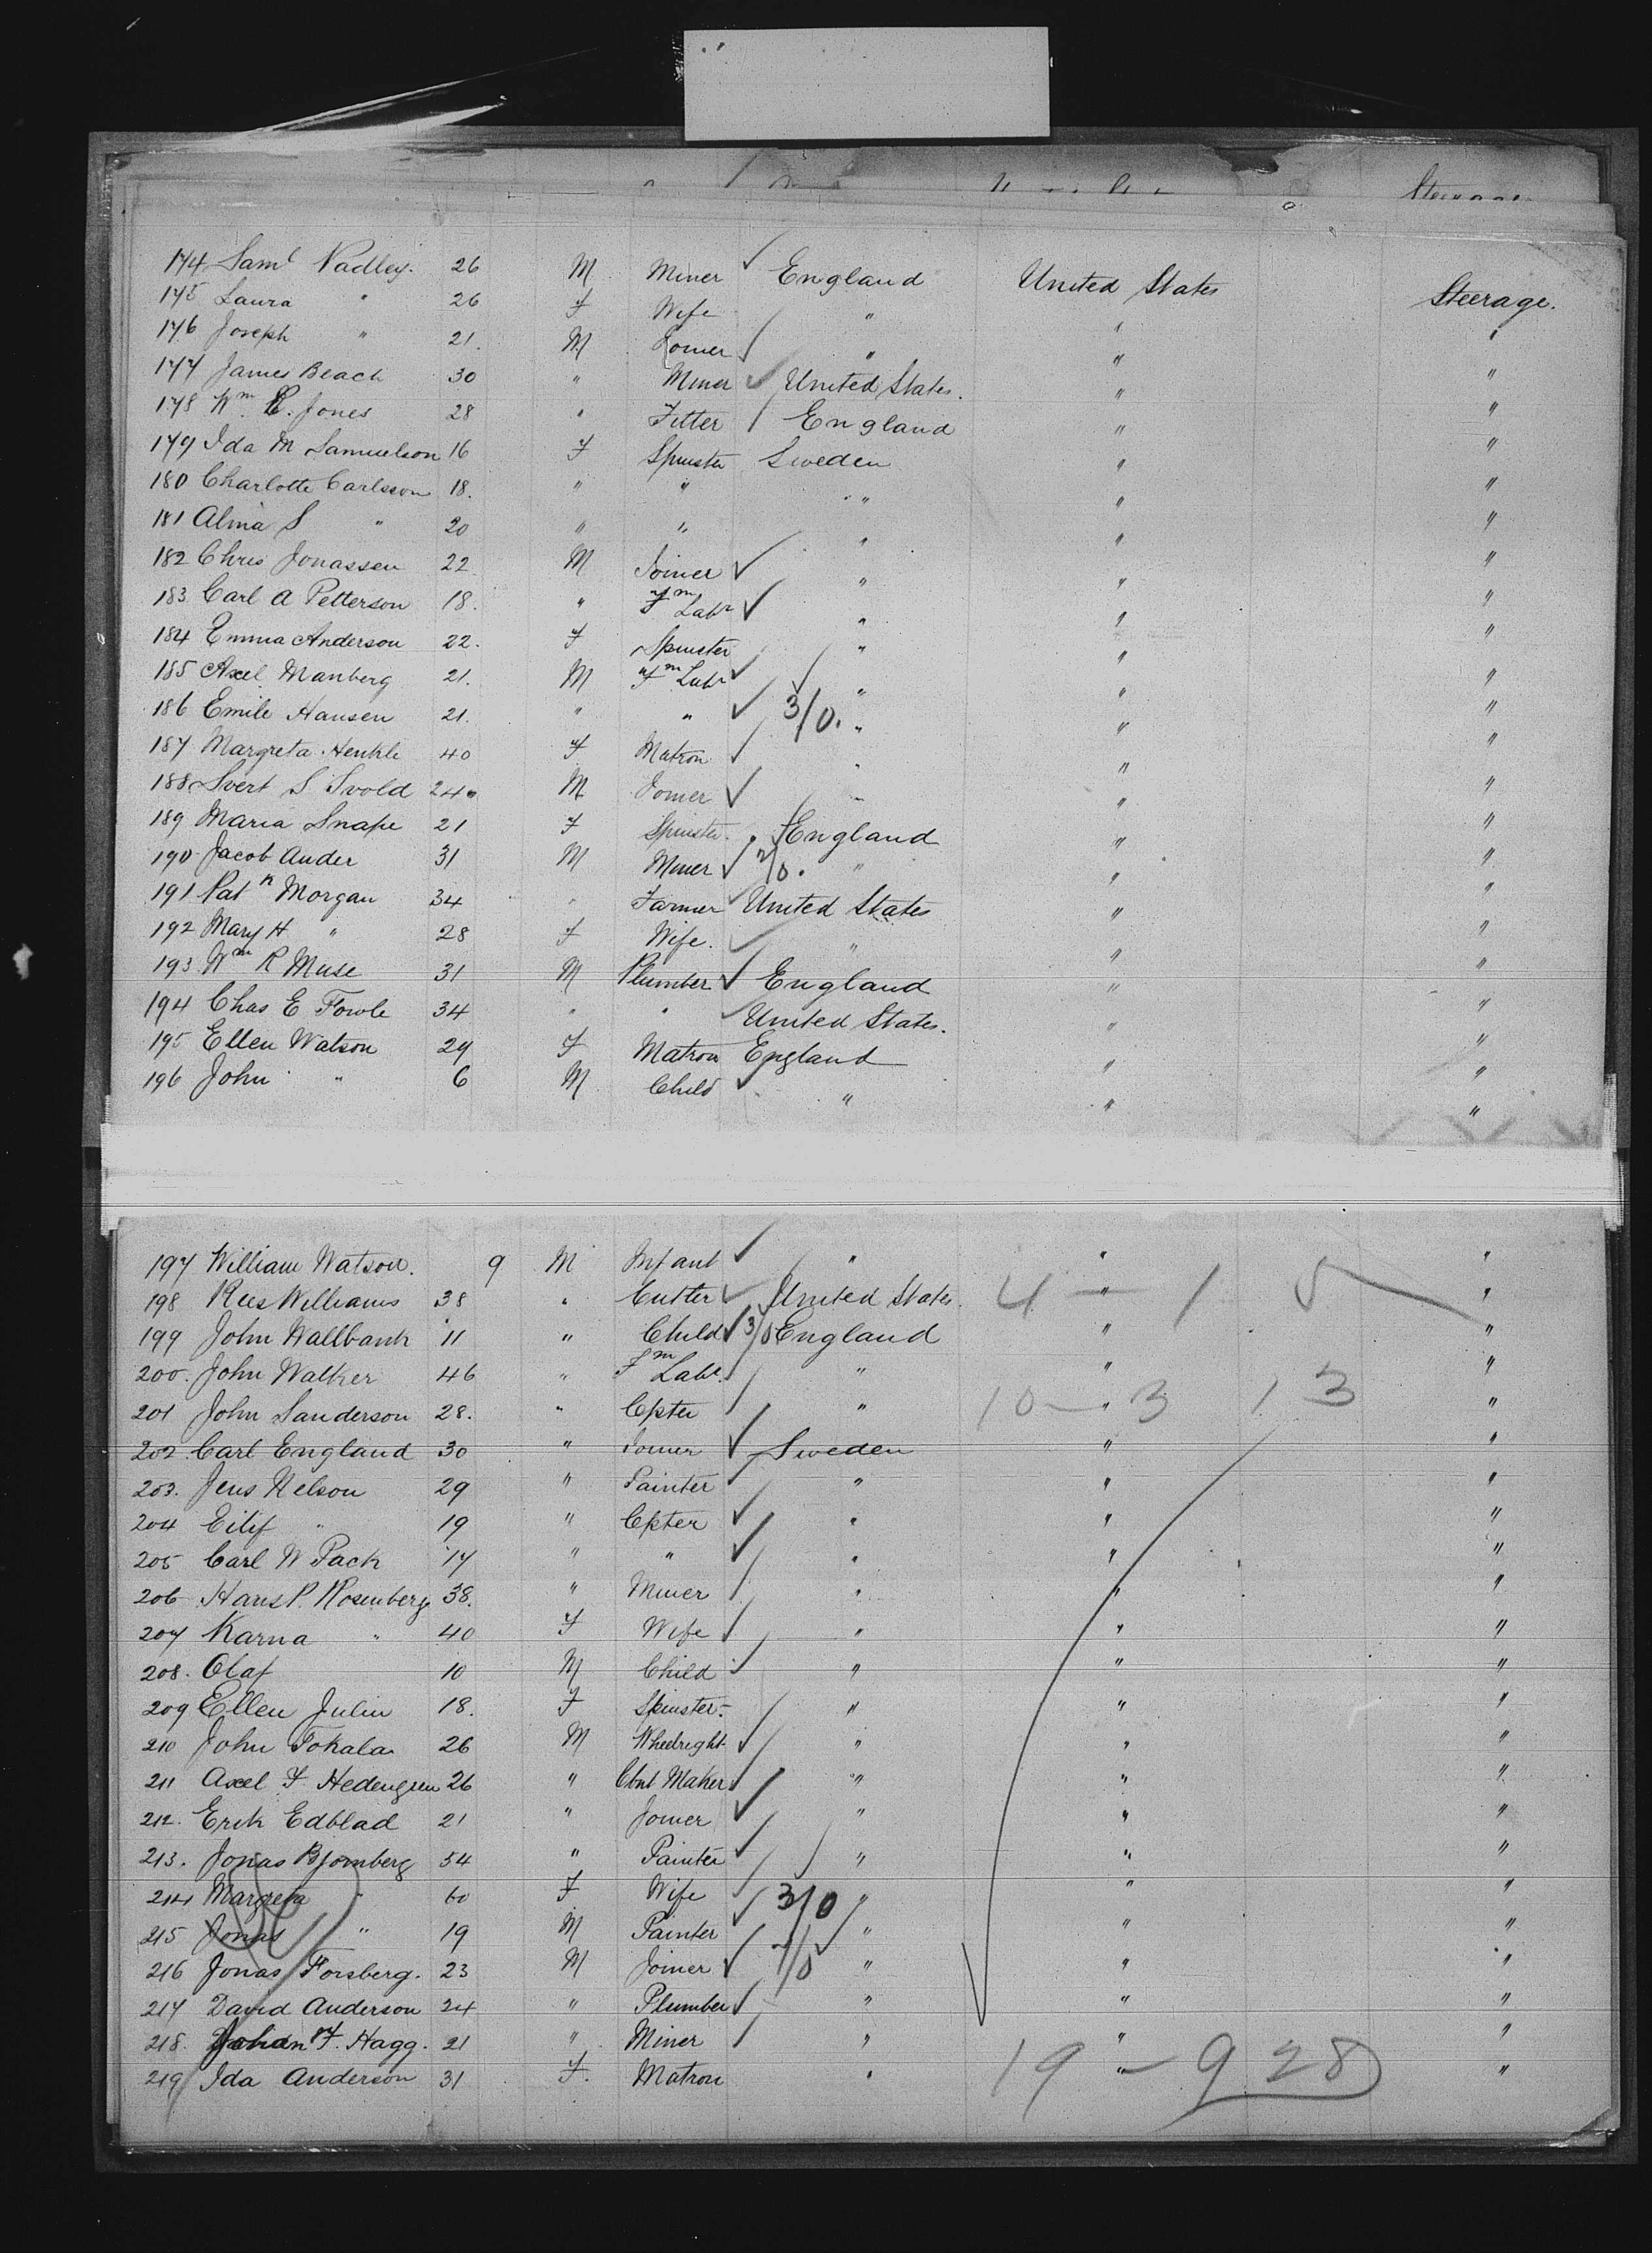 Steerage
174 Saml Nadley. 26 M Miner England United States Steerage.
175 Laura " 26 F Wife " " "
176 Joseph " 21. M Joiner " " "
177 James Beach 30 " Miner United States. " "
178 Wm. E. Jones 28 " Fitter England " "
179 Ida M Samuelson 16 F Spinster Sweden " "
180 Charlotte Carlsson 18. " " " " "
181 Alma S " 20 " " " " "
182 Chris Jonassen 22 M Joiner " " "
183 Carl A Petterson 18. " Fm Labr " " "
184 Emma Anderson 22. F Spinster " " "
185 Axel Manberg 21. M Fm Labr " " "
186 Emile Hansen 21. " " 3/0. " " "
187 Margreta Henkle 40 F Matron " " "
188 Svert S Svold 24 M Joiner " " "
189 Maria Snape 21 F Spinster. England " "
190 Jacob Ander 31 M Miner 2/0. " " "
191 Patk Morgan 34 " Farmer United States " "
192 Mary H " 28 F Wife. " " "
193 Wm R Muse 31 M Plumber England " "
194 Chas E Fowle 34 " " United States. " "
195 Ellen Watson 29 F Matron England " "
196 John " 6 M Child " " "
197 William Watson. 9 M Infant " " "
198 Rees Williams 38 " Cutter United States. " 4 - 1 5 "
199 John Wallbank 11 " Child 3/0 England " "
200. John Walker 46 " Fm Labr. " " "
201 John Sanderson 28. " Cpter " " 10 - 3 13 "
202. Carl England 30 " Joiner Sweden " "
203. Jens Nelson 29 " Painter " " "
204 Eilif " 19 " Cpter " " "
205 Carl W Pack 17 " " " " "
206 Hans P. Rosenberg 38. " Miner " " "
207 Karna " 40 F Wife " " "
208. Olaf 10 M Child " " "
209 Ellen Julin 18. F Spinster. " " "
210 John Tokala 26 M Wheelright " " "
211 Axel F. Hedengren 26 " Cbnt Maker " " "
212. Erik Edblad 21 " Joiner " " "
213. Jonas Bjomberg 54 " Painter " " "
214 Margreta " 60 F Wife 3/0 " " "
215 Jonas " 19 M Painter " " "
216 Jonas Forsberg. 23 M Joiner 1/0 " " "
217 David Anderson 24 " Plumber " " "
218. Johan F. Hagg. 21 " Miner " " "
219 Ida Anderson 31 F. Matron " " 19 - 9 28 "